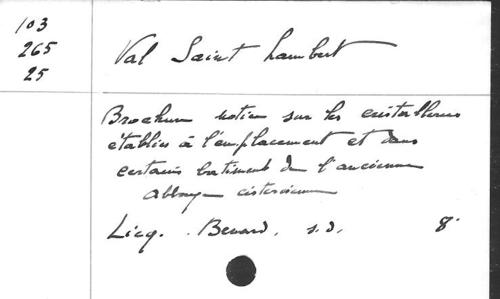 103
265
25
Val Saint Lambert
Brochure notice sur les cristalleries
établies à l'emplacement et dans
certains batiments de l'ancienne
abbaye cistercienne
Liég. Benard, s.d. 8°